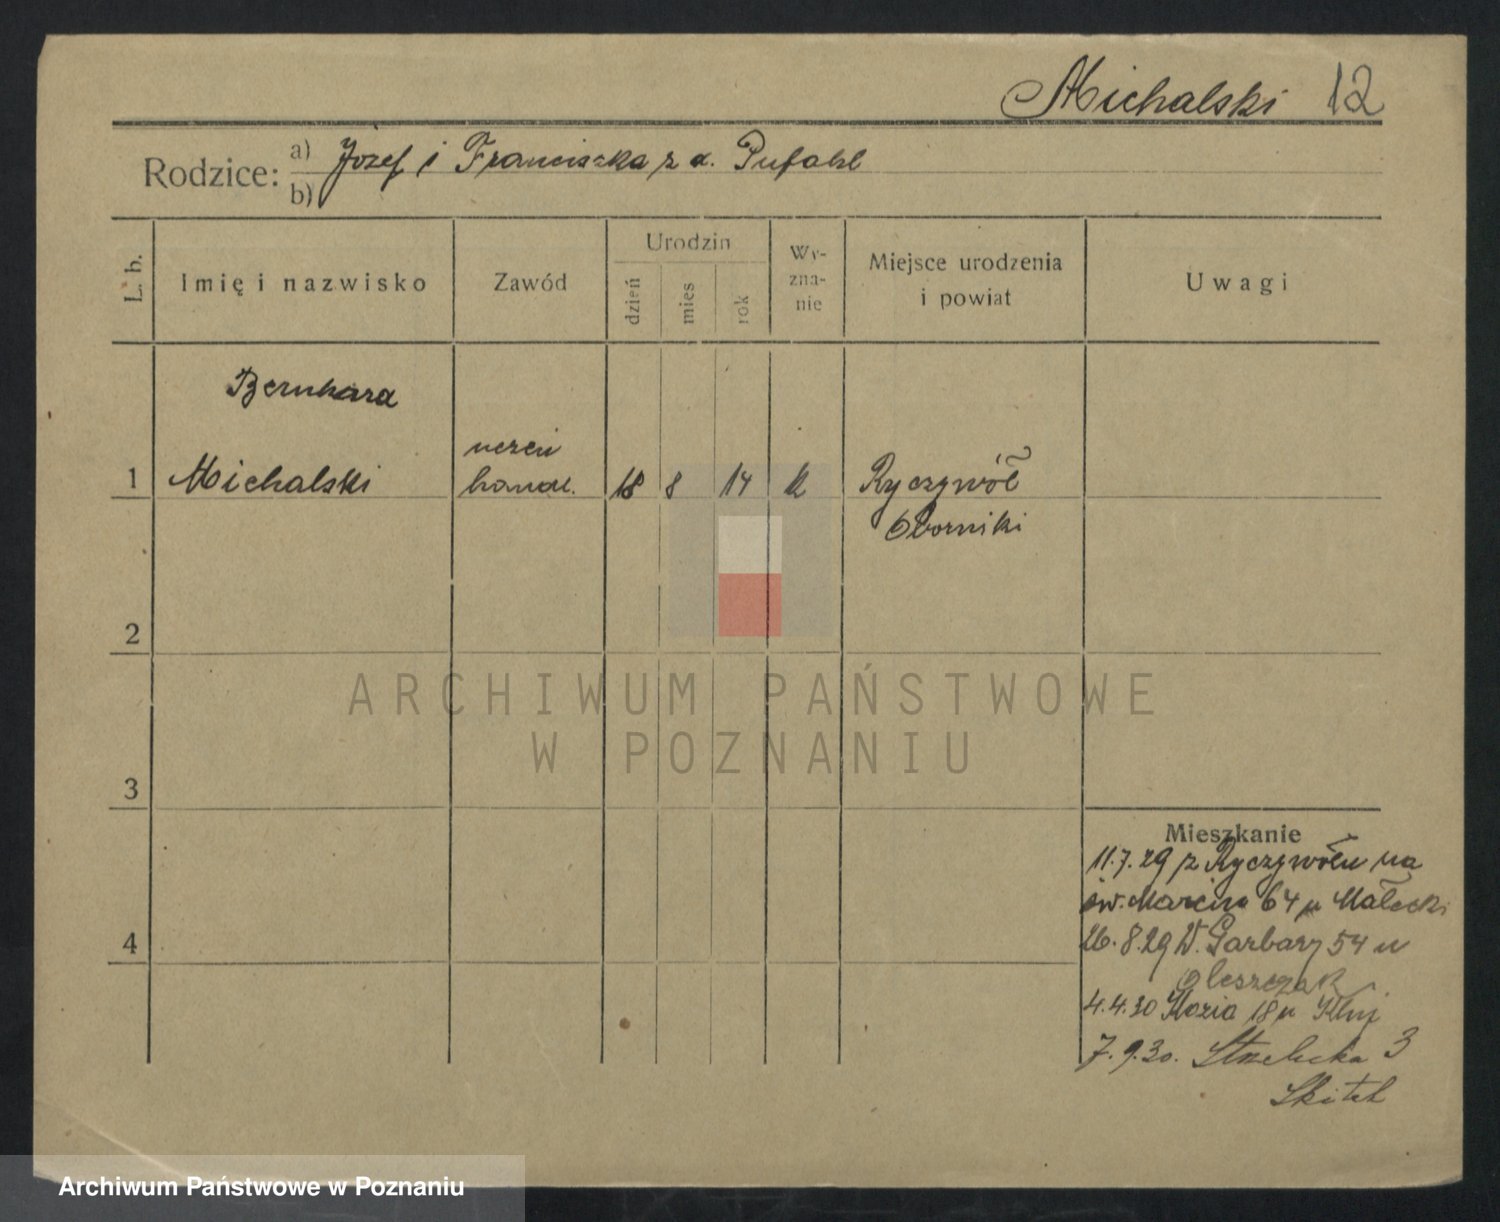 Michalski 12
Rodzice: a) Józef i Franciszka z d. Pufahl
b)
L. b.
Imię i nazwisko
Zawód
Urodzin
dzień
mies
rok
Wy-
zna-
nie
Miejsce urodzenia
i powiat
Uwagi
Bernhard
1 Michalski
uczeń
handl.
18 8 14 k
Ryczywół
Oborniki
2
3
4
ARCHIWUM PAŃSTWOWE
W POZNANIU
Mieszkanie
11.7.29 z Ryczywołu na
św. Marcin 64 u Małecki
26.8.29 W. Garbary 54 u
Oleszczak
4.4.30 Kozia 18 u
7.9.30. Strzelecka 3
Archiwum Państwowe w Poznaniu